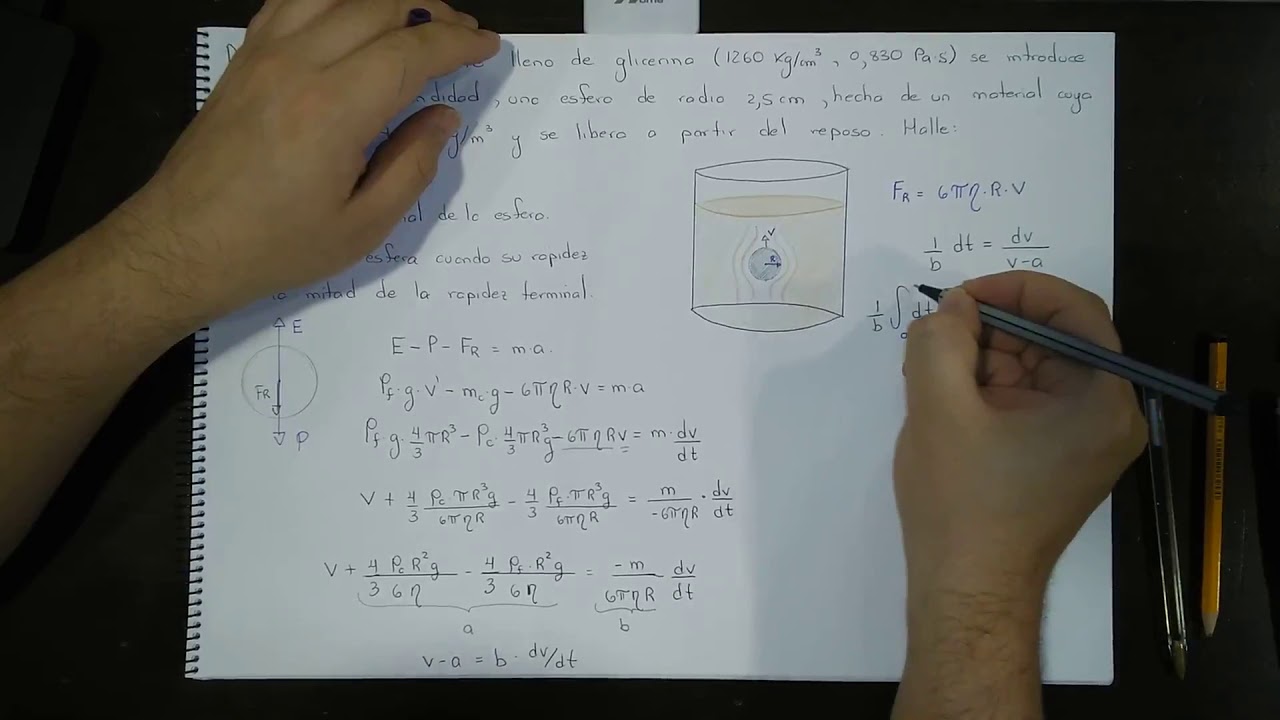 lleno de glicerina (1260 Kg/cm³, 0,830 Pa·s) se introduce
, una esfera de radio 2,5 cm, hecha de un material cuya
g/m³ y se libera a partir del reposo. Halle:
de la esfera.
esfera cuando su rapidez
mitad de la rapidez terminal.
E
FR
P
V
R
F_R = 6πη·R·V
1/b dt = dv/(v-a)
1/b ∫ dt
E - P - F_R = m·a.
ρ_f·g·v' - m_c·g - 6πηR·v = m·a
ρ_f·g·4/3 πR³ - ρ_c·4/3 πR³g - 6πηRv = m·dv/dt
v + 4/3 ρ_c·πR³g/6πηR - 4/3 ρ_f·πR³g/6πηR = m/-6πηR · dv/dt
v + 4/3 ρ_c R²g/6η - 4/3 ρ_f·R²g/6η = -m/6πηR dv/dt
a b
v-a = b · dv/dt